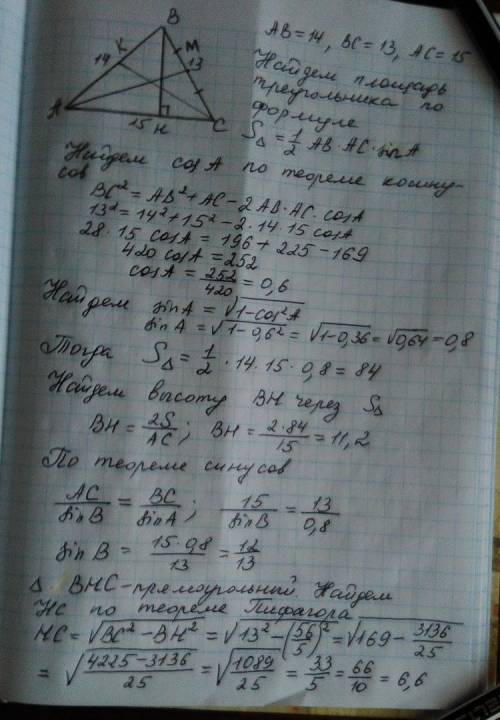 B
AB=14, BC=13, AC=15
K
M
14
13
Найдем площадь
треугольника по
формуле
A
15
H
C
S△ = 1/2 AB·AC·sinA
Найдем cosA по теореме косину-
сов
BC² = AB² + AC - 2AB·AC·cosA
13² = 14² + 15² - 2·14·15 cosA
28·15 cosA = 196 + 225 - 169
420 cosA = 252
cosA = 252/420 = 0,6
Найдем sinA = √(1-cos²A)
sinA = √(1-0,6²) = √(1-0,36) = √0,64 = 0,8
Тогда S△ = 1/2 · 14·15·0,8 = 84
Найдем высоту BH через S△
BH = 2S/AC; BH = 2·84/15 = 11,2
По теореме синусов
AC/sinB = BC/sinA; 15/sinB = 13/0,8
sinB = 15·0,8/13 = 12/13
△ BHC-прямоугольный. Найдем
HC по теореме Пифагора
HC = √(BC² - BH²) = √(13² - (56/5)²) = √(169 - 3136/25)
= √((4225-3136)/25) = √(1089/25) = 33/5 = 66/10 = 6,6